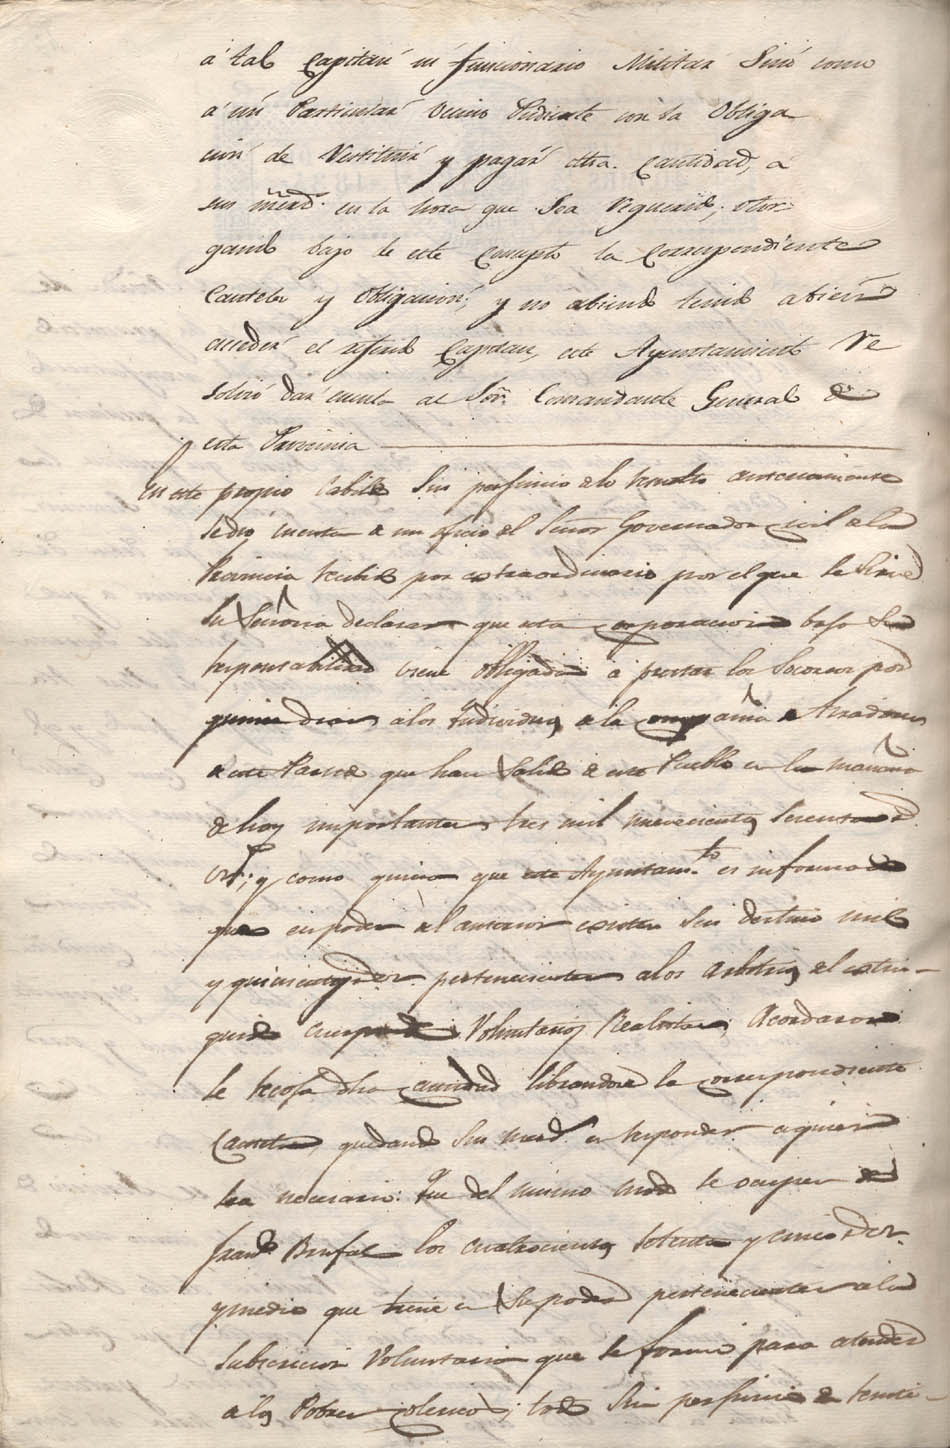 á tal Capitán ni funcionario Militar Sinó como
á un Particular vecino Pudiente con la Obliga
ción de Restituir y pagar otra cantidad, a
sus merds. en la hora que Sea Requerido; otor-
gando bajo de este concepto la Correspondiente
Cautela y Obligacion; y no abiendo tenido a bien
acceder el referido Capitan, este Ayuntamiento Re
solvió dar cuenta al Sor. Comandante General de
esta Provincia
En este propio Cabildo Sin perjuicio de lo resuelto anteriormente
se dió cuenta de un oficio del Señor Governador civil de la
Provincia recibido por extraordinario por el que se Sirve
Su Señoria declarar que esta corporacion bajo Su
responsabilidad viene obligada a prestar los Socorros por
quince dias a los Individuos de la compañia de Tiradores
de este Partido que han Salido de este Pueblo en la mañana
de hoy importantes tres mil nuevecientos Secenta
; y como quiera que este Ayuntamto. es informado
que en poder del anterior existen Sin destino mil
y quinientos pertenecientes a los Arbitrios del extin-
guido cuerpo de Voluntarios Realistas, Acordaron
se recoja dha cantidad librandose la correspondiente
Cautela, quedando Sus merds. en responder a quien
sea necesario: Que del mismo modo se ocupen de
Franco Brufal los cuatrocientos Setenta y cinco
y medio que tiene en Su poder pertenecientes a la
Subscricion Voluntaria que se formó para atender
a los Pobres colericos; todo Sin perjuicio de